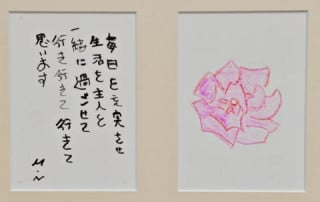 毎日を充実させ
生活を主人と
一緒に過させて
行き行きて行きて
思います